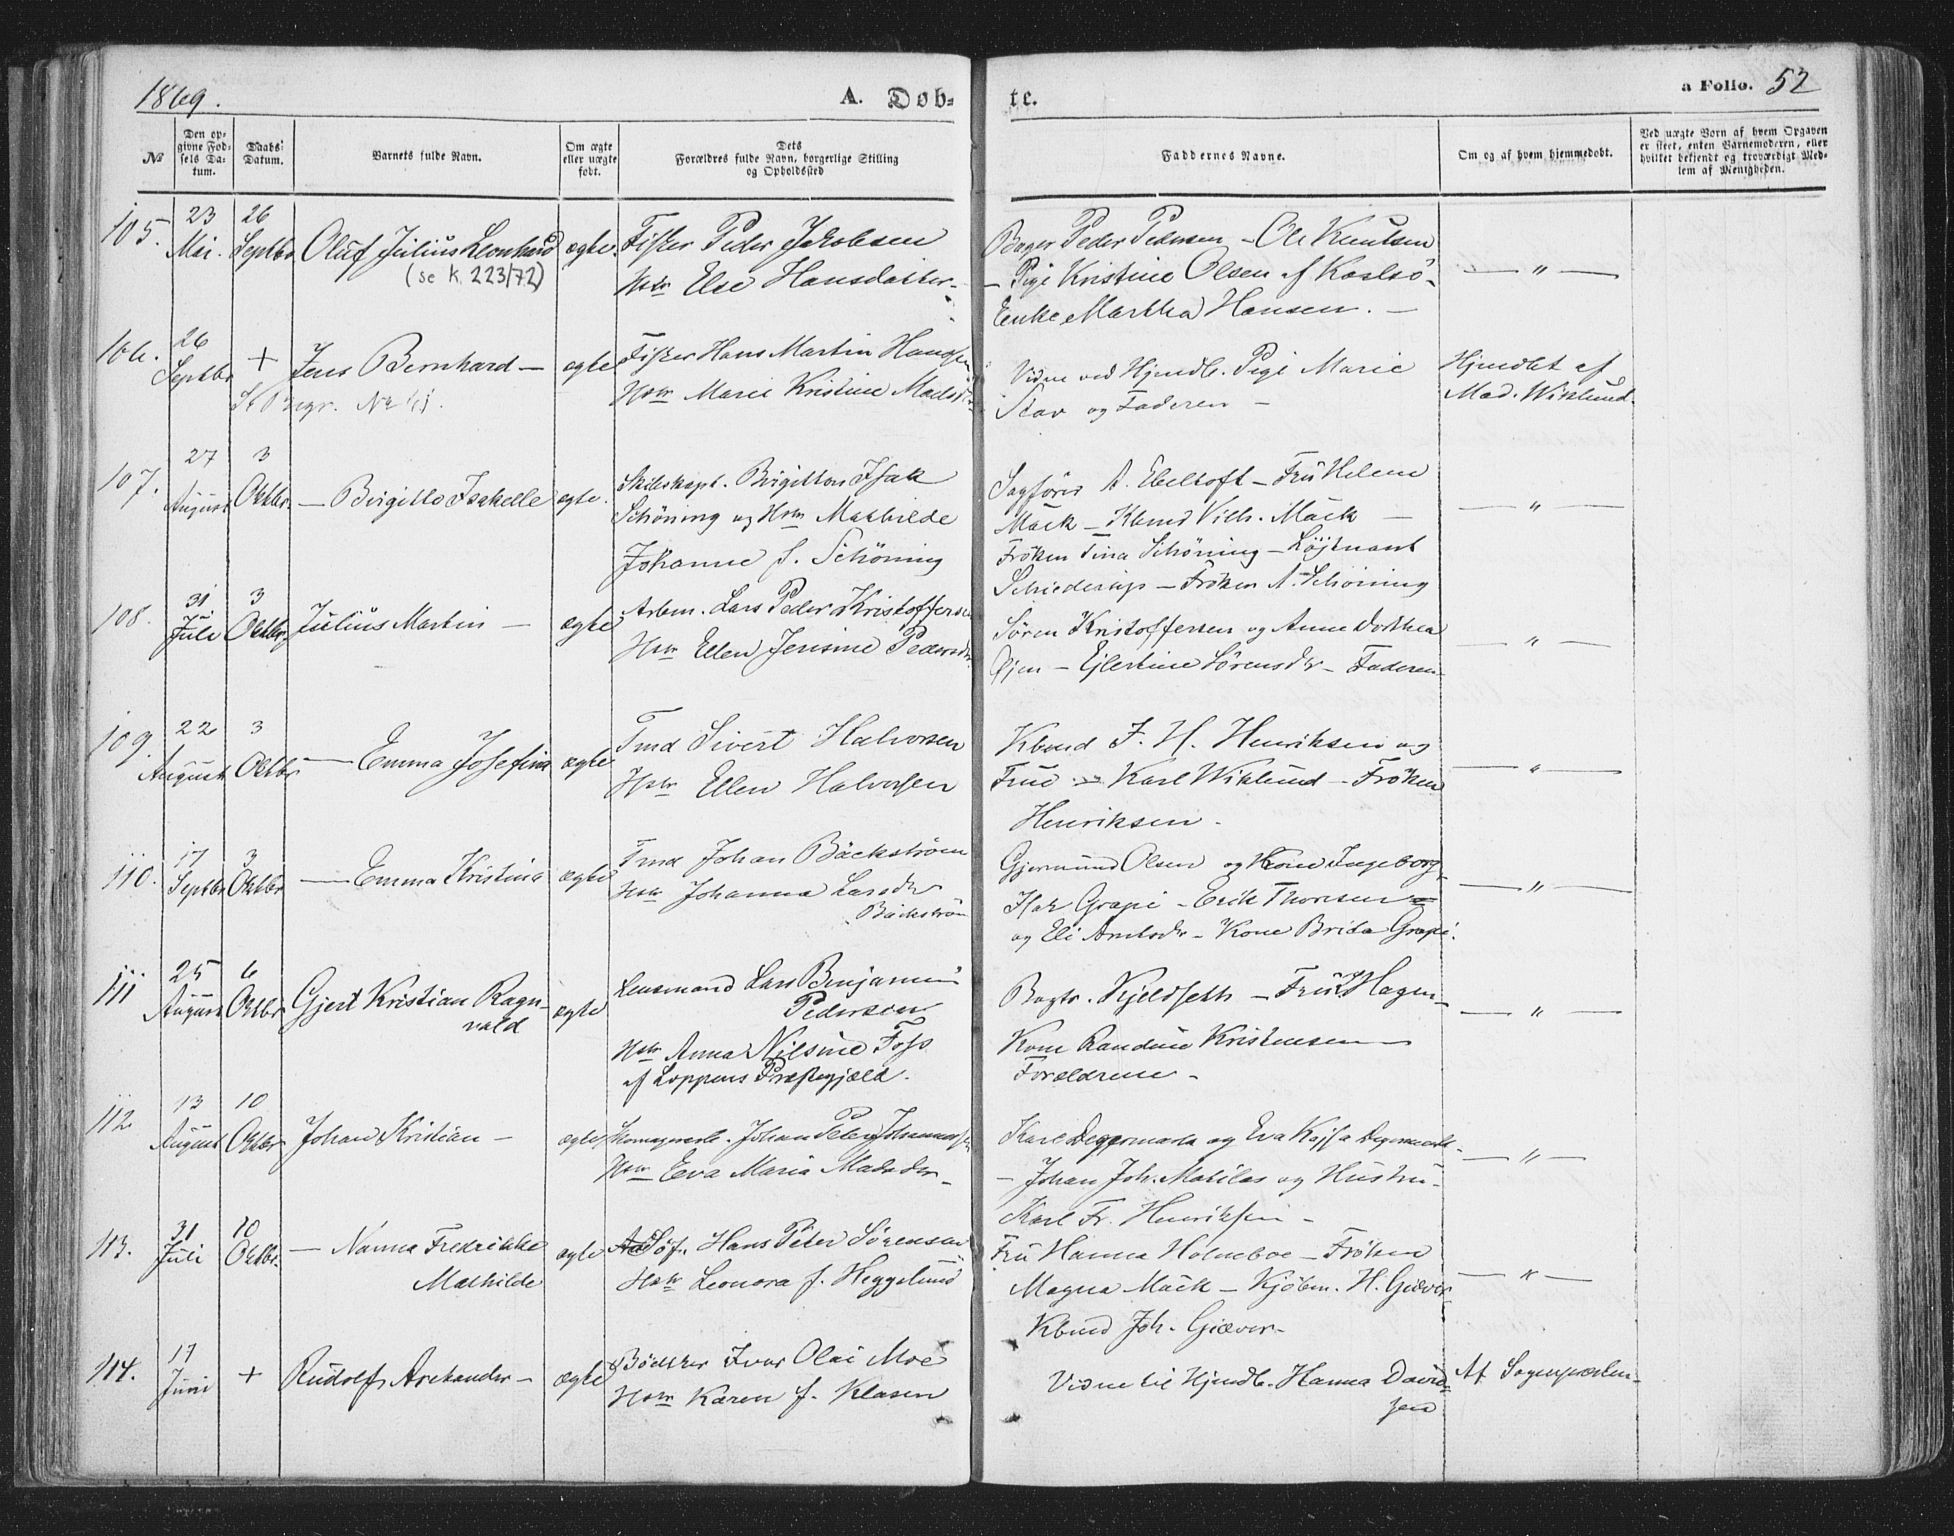 1869.
A. Døb-
te.
a Folio. 52
No
Den op-
givne Fød-
sels Da-
tum.
Daabs-
Datum.
Barnets fulde Navn.
Om ægte
eller uægte
født.
Dets
Forældres fulde Navn, borgerlige Stilling
og Opholdssted
Faddernes Navne.
Om og af hvem hjemmedøbt.
Ved uægte Børn af hvem Opgaven
er skeet, enten Barnemoderen, eller
hvilket bekjendt og troværdigt Med-
lem af Menigheden.
105.
23
Mai.
26
Septbr
Oluf Julius Leonhard
(se k. 223/72)
ægte.
Fisker Peder Jakobsen
Hstr Else Hansdatter.
Bager Peder Pedersen - Ole Knutsen
- Pige Kristine Olsen af Karlsö -
Enke Martha Hansen. -
- " -
106.
26
Septbr
+
St Begr. No
Jens Bernhard -
ægte
Fisker Hans Martin Hansen
Hstr Marie Kristine Madsdtr
Vidne ved Hjmdb. Pige Marie
og Faderen -
Hjmdbt af
Mad. Wiklund.
107.
27
August
3
Oktbr.
- Birgitte Isakelle
ægte.
Skibskapt. Birgithon Isak
Schöning og Hstr Mathilde
Johanne f. Schöning
Sagförer A. Ebeltoft - Fru Helene
Mack - Kbmd Vilh. Mack -
Fröken Tina Schöning - Löjtnant
Schiederup - Fröken A. Schöning
- " -
108.
31
Juli
3
Oktbr.
Julius Martin -
ægte
Arbm. Lars Peder Kristoffersen
Hstr Ellen Jensine Pedersdr.
Sören Kristoffersen og Anne Dorthea
Öjen - Ejlertine Sörensdr - Faderen
- " -
109.
22
August
3
Oktbr
- Emma Josefine
ægte
Tmd Sivert Halvorsen
Hstr Ellen Halvorsen
Kbmd F. H. Henriksen og
Frue - Karl Wiklund - Fröken
Henriksen -
- " -
110.
17
Septbr
3
Oktbr
- Emma Kristina
ægte
Tmd Johan Bäckström
Hstr Johanna Larsdr
Bäckström
Gjermund Olsen og Kone Ingeborg
Isak Grape - Erik Thomsen
og Eli Arntsdr - Kone Brita Grape.
- " -
111
25
August
6
Oktbr
Gjert Kristian Ragn-
vald
ægte
Lensmand Lars Benjamin
Pedersen
Hstr Anna Nilsine Foss
af Loppens Præstegjæld.
Bagtr. Kjeldseth - Fru Hagen -
Kone Randine Kristensen -
Forældrene -
- " -
112
13
August
10
Oktbr
Johan Kristian -
ægte
Skomagersv. Johan Peter Johannessen
Hstr Eva Maria Madsdr -
Karl Degermark og Eva Kajsa Degermark -
- Johan Joh. Matilas og Hustru -
Karl Fr. Henriksen -
- " -
113.
31
Juli
10
Oktbr.
- Nanna Fredrikke
Mathilde
ægte
Hans Peter Sörensen
Hstr Leonora f. Heggelund
Fru Hanna Holmboe - Fröken
Magna Mack - Kjöbm. H. Giæver
Kbmd Joh. Giæver -
- " -
114.
17
Juni
+
Rudolf Arekander -
ægte
Bödtker Ivar Olai Moe
Hstr Karen f. Klasen
Vidne til Hjmdb. Hanna David-
sen
Af Sognepræsten -